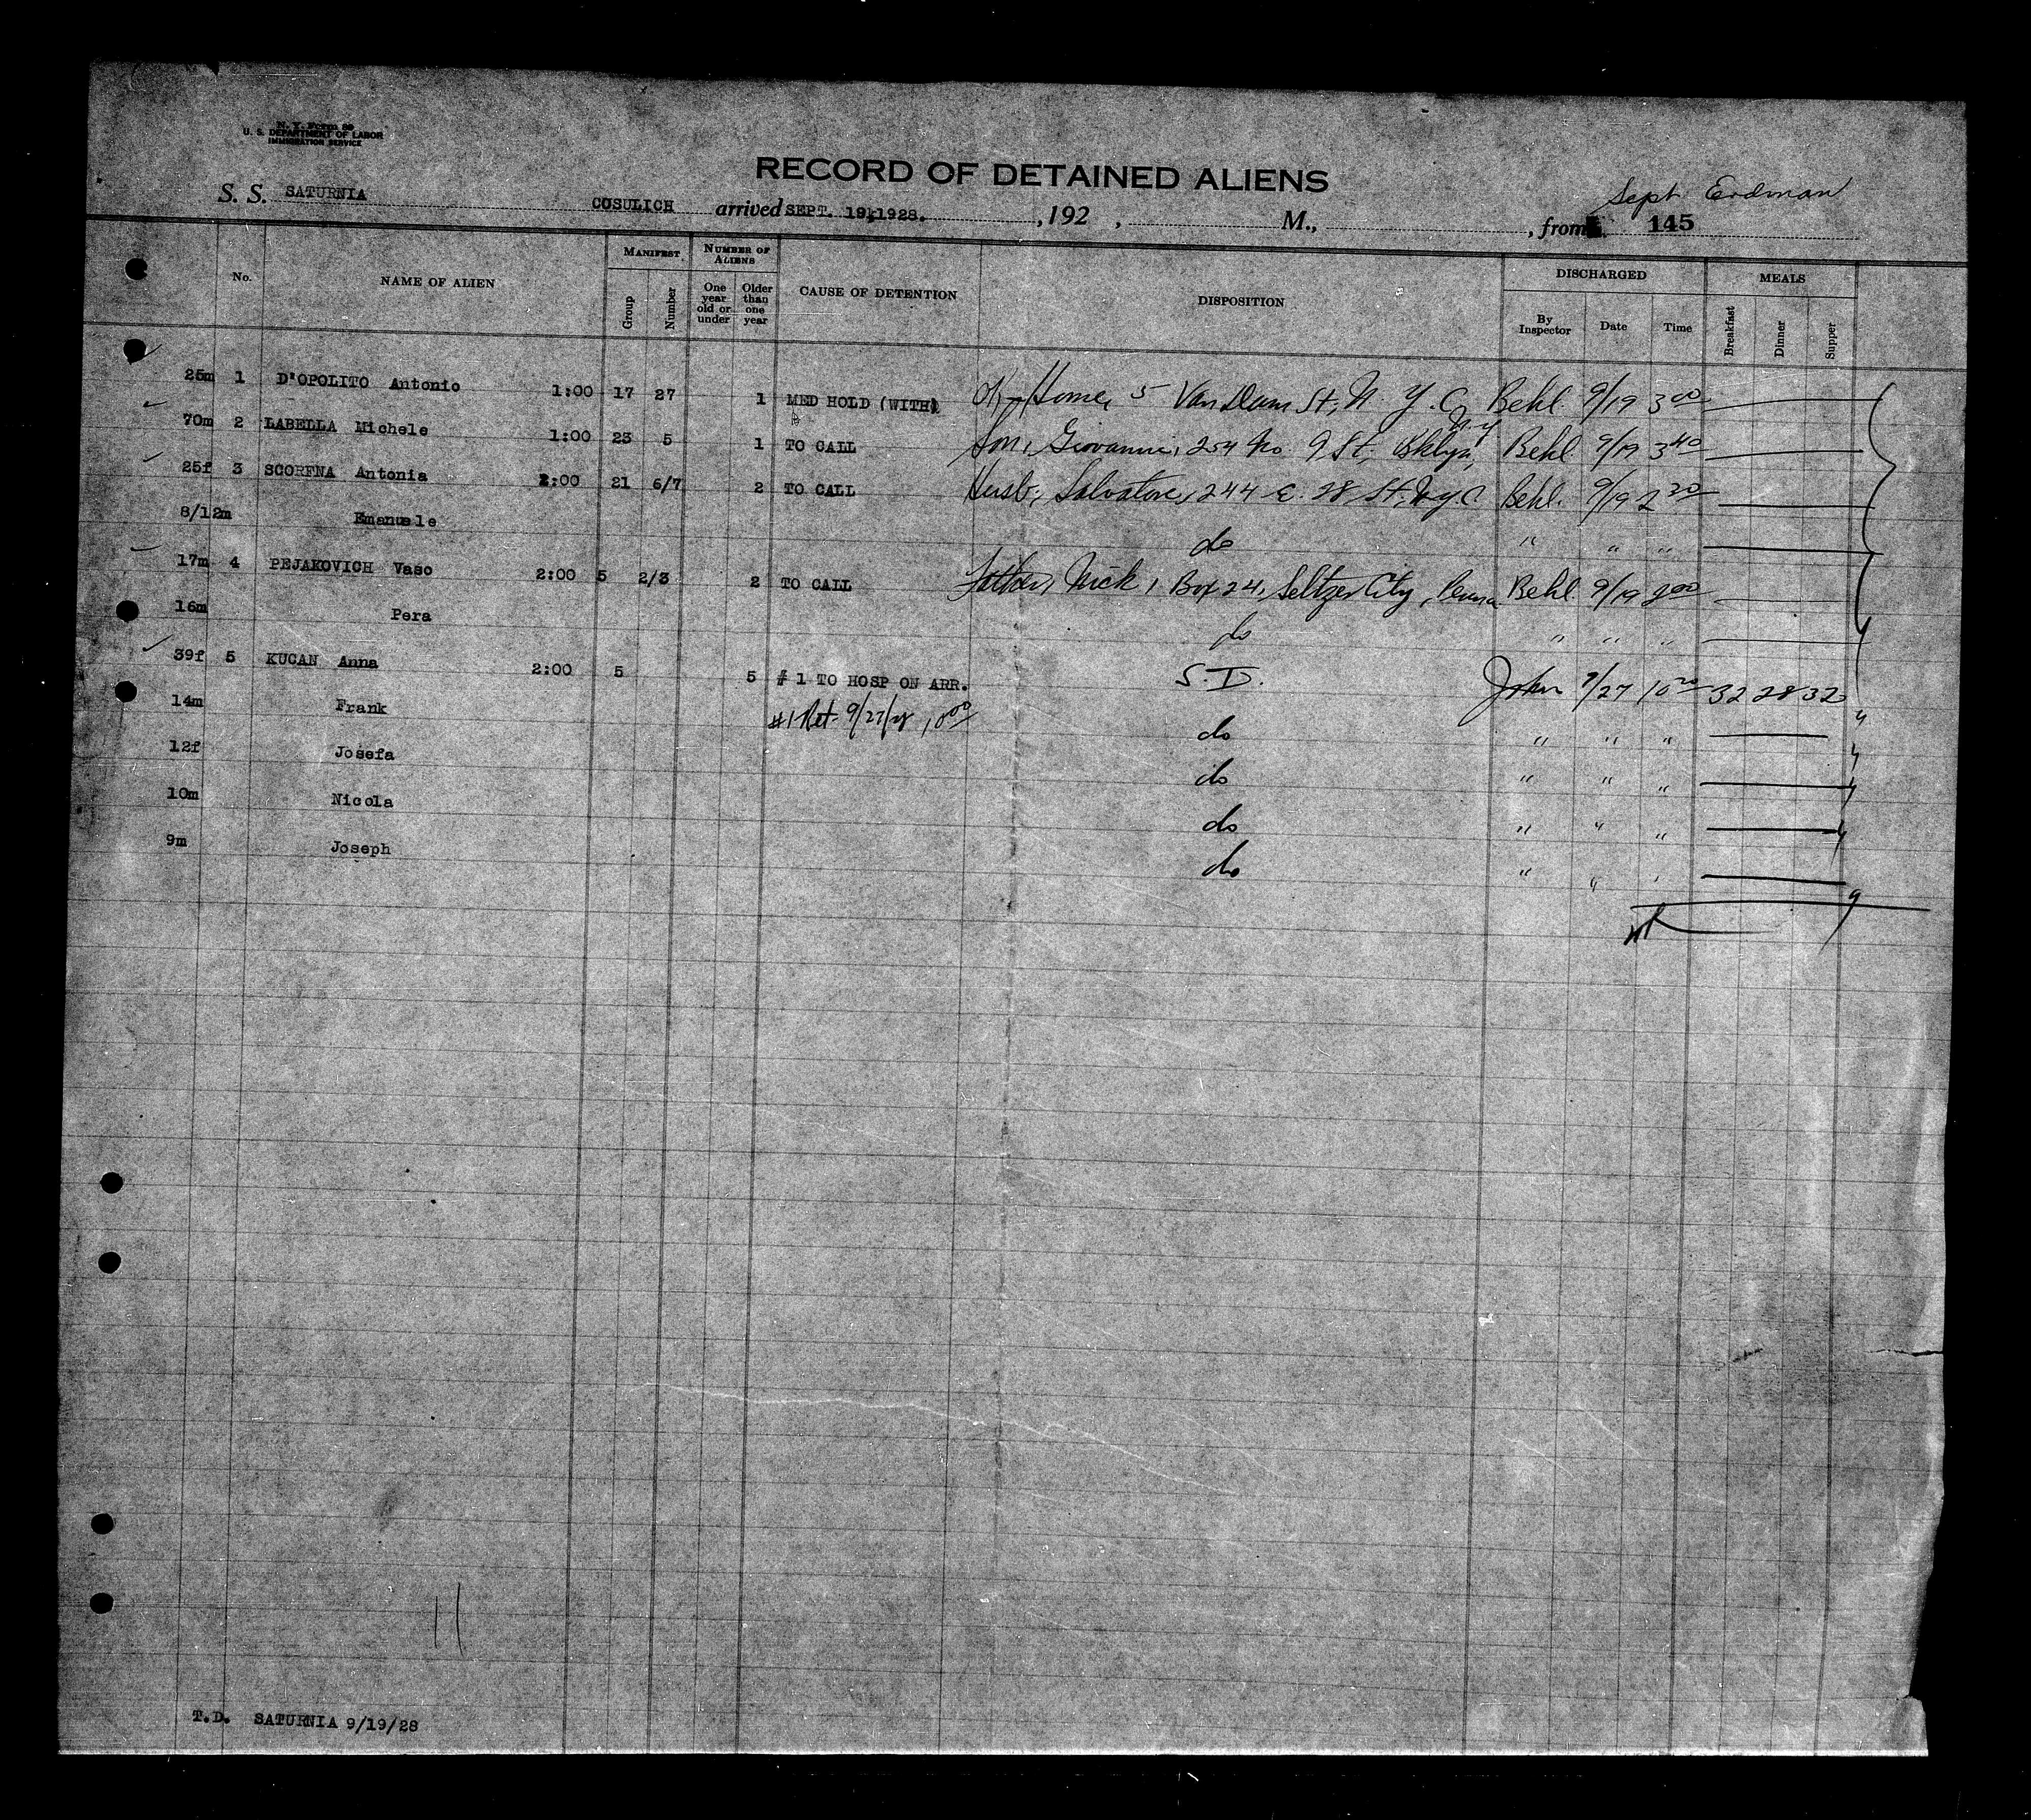 N. Y. Form 89
U. S. DEPARTMENT OF LABOR
IMMIGRATION SERVICE
RECORD OF DETAINED ALIENS
Sept. Erdman
S. S. SATURNIA COSULICH arrived SEPT. 19, 1928. , 192 , M., , from 145
No. NAME OF ALIEN MANIFEST Group Number NUMBER OF ALIENS One year old or under Older than one year CAUSE OF DETENTION DISPOSITION DISCHARGED By Inspector Date Time MEALS Breakfast Dinner Supper
25m 1 D'OPOLITO Antonio 1:00 17 27 1 MED HOLD (WITH) Home, 5 Van Dam St, N. Y. C. Behl 9/19 3 00
70m 2 LABELLA Michele 1:00 23 5 1 TO CALL Son, Giovanni, 254 No. 9 St, Bklyn, N.Y. Behl 9/19 3 40
25f 3 SCORENA Antonia 2:00 21 6/7 2 TO CALL Husb, Salvatore, 244 E. 28 St, N.Y.C. Behl. 9/19 2 20
8/12m Emanuele do " " "
17m 4 PEJAKOVICH Vaso 2:00 5 2/3 2 TO CALL Father, Nick, Box 24, Seltzer City, Penna Behl 9/19 2 00
16m Pera do " " "
39f 5 KUCAN Anna 2:00 5 5 # 1 TO HOSP ON ARR. S. I. John 9/27 10 20 32 28 32
14m Frank #1 Ret. 9/27 10 00 do " " "
12f Josefa do " " "
10m Nicola do " " "
9m Joseph do " " "
11
T.D. SATURNIA 9/19/28